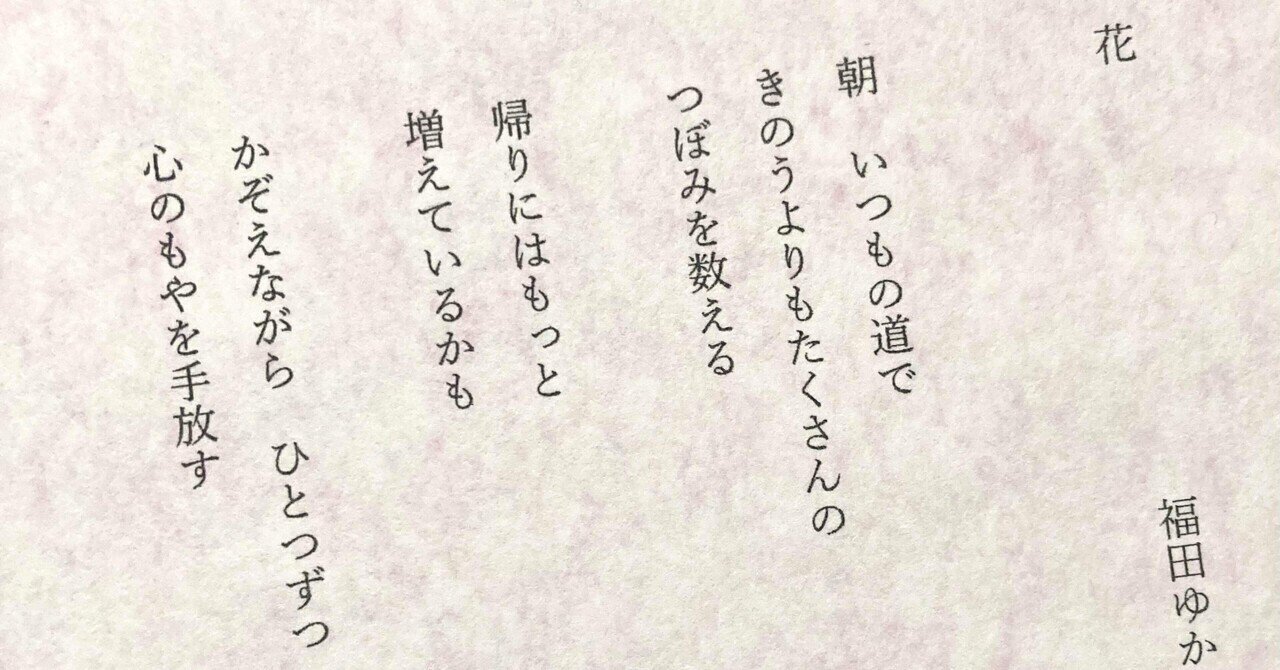 花　福田ゆか
朝　いつもの道で
きのうよりもたくさんの
つぼみを数える
帰りにはもっと
増えているかも
かぞえながら　ひとつずつ
心のもやを手放す